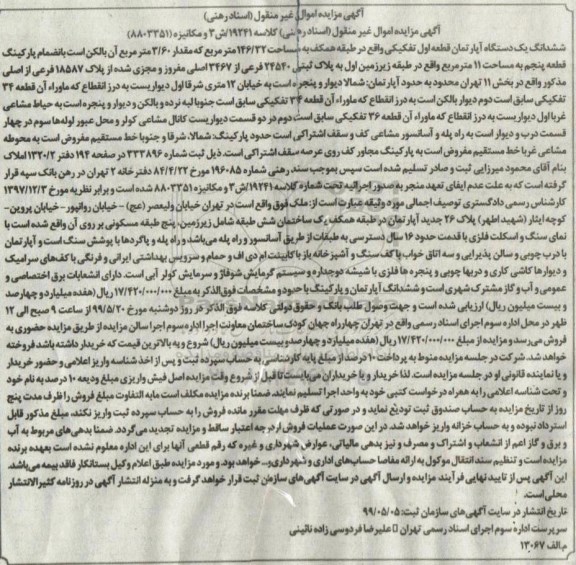 آگهی مزایده اموال غیر منقول (اسناد رهنی)
آگهی مزایده اموال غیر منقول (اسناد رهنی) کلاسه ۱۹۲۴۱/ش۳ و مکانیزه (۸۸۰۳۳۵۱)
ششدانگ یک دستگاه آپارتمان قطعه اول تفکیکی واقع در طبقه همکف به مساحت ۱۴۶/۲۲ متر مربع که مقدار ۳/۶۰ متر مربع آن بالکن است بانضمام پارکینگ
قطعه پنجم به مساحت ۱۱ متر مربع واقع در طبقه زیرزمین اول به پلاک ثبتی ۲۴۵۴۰ فرعی از ۳۴۶۷ اصلی مفروز و مجزی شده از پلاک ۱۸۵۸۷ فرعی از اصلی
مذکور واقع در بخش ۱۱ تهران محدود به حدود آپارتمان: شمالا دیوار و پنجره است به خیابان ۱۲ متری شرقا اول دیواریست به درز انقطاع که ماوراء آن قطعه ۳۴
تفکیکی سابق است دوم دیوار بالکن است به درز انقطاع که ماوراء آن قطعه ۳۴ تفکیکی سابق است جنوبا لبه نرده و بالکن و دیوار و پنجره است به حیاط مشاعی
غربا اول دیواریست به درز انقطاع که ماوراء آن قطعه ۳۶ تفکیکی سابق است دوم در دو قسمت دیواریست کانال مشاعی کولر و محل عبور لوله‌ها سوم در چهار
قسمت درب و دیوار است به راه پله و آسانسور مشاعی کف و سقف اشتراکی است حدود پارکینگ: شمالا، شرقا و جنوبا خط مستقیم مفروض است به محوطه
مشاعی غربا خط مستقیم مفروض است به پارکینگ مجاور کف روی عرصه سقف اشتراکی است. ذیل ثبت شماره ۳۳۳۸۹۶ در صفحه ۱۹۴ دفتر ۱۳۲۰/۲ املاک
بنام آقای محمود میرزایی ثبت و صادر تسلیم شده است سپس بموجب سند رهنی شماره ۱۹۶۰۸۵ مورخ ۸۴/۴/۲۲ دفترخانه ۲ تهران در رهن بانک سپه قرار
گرفته است که به علت عدم ایفای تعهد منجر به صدور اجرائیه تحت شماره کلاسه ۱۹۲۴۱/ش۳ و مکانیزه ۸۸۰۳۳۵۱ شده است و برابر نظریه مورخ ۱۳۹۷/۱۲/۳
کارشناس رسمی دادگستری توصیف اجمالی مورد وثیقه عبارت است از: ملک فوق واقع است در تهران خیابان ولیعصر (عج) - خیابان روانپور - خیابان پروین -
کوچه ایثار (شهید اطهر) پلاک ۲۶ جدید آپارتمان در طبقه همکف یک ساختمان شش طبقه شامل زیرزمین، پنج طبقه مسکونی بر روی آن واقع شده است با
نمای سنگ و اسکلت فلزی با قدمت حدود ۱۶ سال دسترسی به طبقات از طریق آسانسور و راه پله می‌باشد و راه پله و پاگردها با پوشش سنگ است و آپارتمان
با درب چوبی و سالن پذیرایی و سه اتاق خواب با کف سنگ و آشپزخانه باز با کابینت ام دی اف و حمام و سرویس بهداشتی ایرانی و فرنگی با کف‌های سرامیک
و دیوارها کاشی کاری و دربها چوبی و پنجره ها فلزی با شیشه دوجداره و سیستم گرمایش شوفاژ و سرمایش کولر آبی است. دارای انشعابات برق اختصاصی و
عمومی و آب و گاز مشترک شهری است و ششدانگ آپارتمان و پارکینگ با حدود و مشخصات فوق‌الذکر به مبلغ ۱۷/۴۲۰/۰۰۰/۰۰۰ ریال (هفده میلیارد و چهارصد
و بیست میلیون ریال) ارزیابی شده است و جهت وصول طلب بانک و حقوق دولتی کلاسه فوق الذکر در روز دوشنبه مورخ ۹۹/۵/۲۰ از ساعت ۹ صبح الی ۱۲
ظهر در محل اداره سوم اجرای اسناد رسمی واقع در تهران چهارراه جهان کودک ساختمان معاونت اجرا اداره سوم اجرا سالن مزایده از طریق مزایده حضوری به
فروش می‌رسد و مزایده از مبلغ ۱۷/۴۲۰/۰۰۰/۰۰۰ ریال (هفده میلیارد و چهارصد و بیست میلیون ریال) شروع و به بالاترین قیمت که خریدار داشته باشد فروخته
خواهد شد. شرکت در جلسه مزایده منوط به پرداخت ۱۰ درصد از مبلغ پایه کارشناسی به حساب سپرده ثبت و پس از اخذ شناسه واریز اعلامی و حضور خریدار
و یا نماینده قانونی او در جلسه مزایده است. لذا خریدار و یا خریداران می‌بایست تا قبل از شروع وقت مزایده اصل فیش واریزی مبلغ ودیعه ۱۰ درصد به نام خود
و تحت شناسه اعلامی را به همراه درخواست کتبی خود به واحد اجرا تسلیم نمایند. ضمنا برنده مزایده مکلف است مابه التفاوت مبلغ فروش را ظرف مدت پنج
روز از تاریخ مزایده به حساب صندوق ثبت تودیع نماید و در صورتی که ظرف مهلت مقرر مانده فروش را به حساب سپرده ثبت واریز نکند، مبلغ مذکور قابل
استرداد نبوده و به حساب خزانه واریز خواهد شد. در این صورت عملیات فروش از درجه اعتبار ساقط و مزایده تجدید می‌گردد. ضمنا بدهی‌های مربوط به آب
و برق و گاز اعم از انشعاب و اشتراک و مصرف و نیز بدهی مالیاتی، عوارض شهرداری و غیره که رقم قطعی آنها برای این اداره معلوم نشده است بعهده برنده
مزایده است و تنظیم سند انتقال موکول به ارائه مفاصا حساب‌های اداری و شهرداری و... خواهد بود. و مورد مزایده طبق اعلام وکیل بستانکار فاقد بیمه می‌باشد.
این آگهی پس از تایید نهایی فرآیند مزایده و ارسال آگهی در سایت آگهی‌های سازمان ثبت قرار خواهد گرفت و به منزله انتشار آگهی در روزنامه کثیرالانتشار
محلی است.
تاریخ انتشار در سایت آگهی‌های سازمان ثبت: ۹۹/۰۵/۰۵
سرپرست اداره سوم اجرای اسناد رسمی تهران علیرضا فردوسی زاده نائینی
م‌الف ۱۳۰۶۷